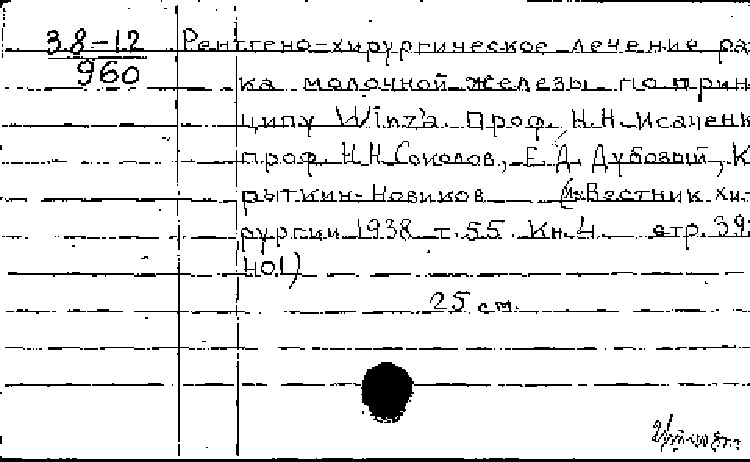 38-12
960
Рентгено-хирургическое лечение ра-
ка молочной железы по прин-
ципу Winz'a. Проф. Н.Н. Исаченк
проф. Н.Н. Соколов, Е.Д. Дубовый, К
рыткин-Новиков (Из: Вестник хи-
рургии 1938 т. 55. Кн. 4. стр. 39
401)
25 см.